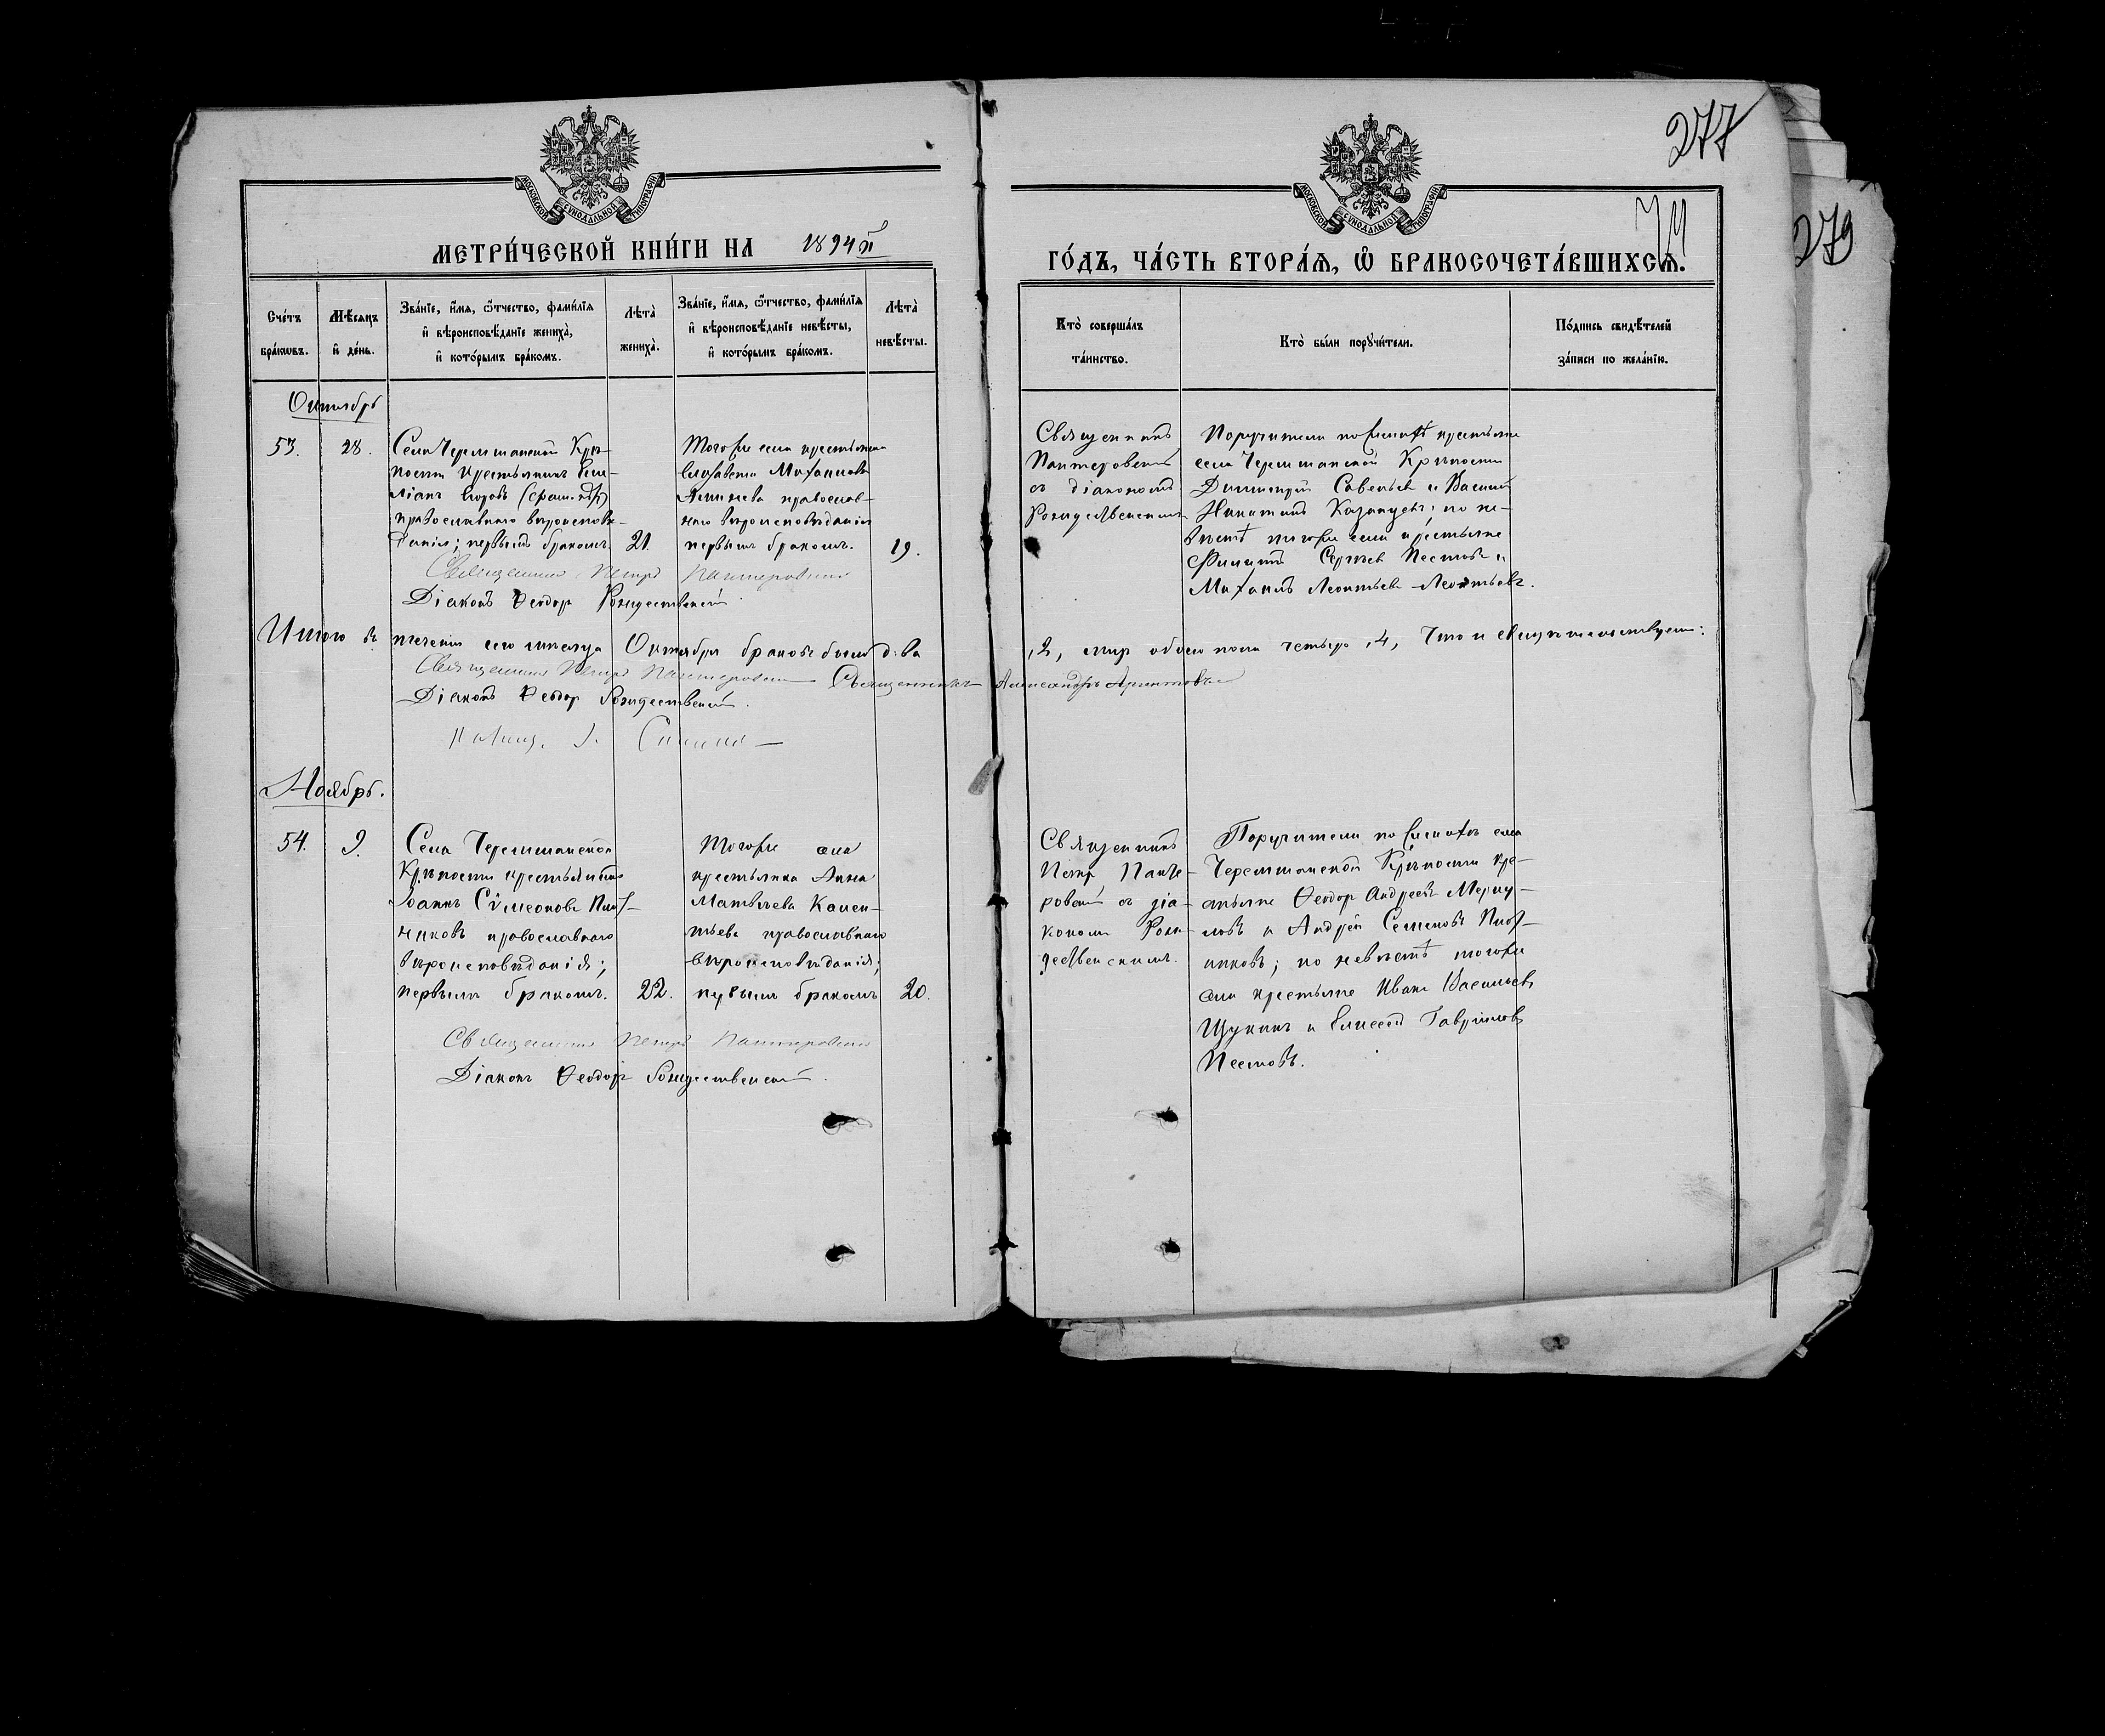 277
279
74
МОСКОВСКОЙ СУНОДАЛЬНОЙ ТИПОГРАФІИ
МОСКОВСКОЙ СУНОДАЛЬНОЙ ТИПОГРАФІИ
МЕТРИ́ЧЕСКОЙ КНИ́ГИ НА 1894й
ГО́ДЪ, ЧА́СТЬ ВТОРА́Я, Ѡ҆ БРАКОСОЧЕТА́ВШИХСЯ.
Сче́тъ бра́кѡвъ.
Мѣ́сяцъ и҆ де́нь.
Зва́нїе, и҆́мя, ѻ҆́тчество, фами́лїя
и҆ вѣроисповѣ́данїе жениха̀,
и҆ кото́рымъ бра́комъ.
Лѣта̀ жениха̀.
Зва́нїе, и҆́мя, ѻ҆́тчество, фами́лїя
и҆ вѣроисповѣ́данїе невѣ́сты,
и҆ кото́рымъ бра́комъ.
Лѣта̀ невѣ́сты.
Кто̀ соверша́лъ
та́инство.
Кто̀ бы́ли пορꙋчи́тели.
По́дпись свидѣ́телей
за́писи по жела́нїю.
Октябрь
53.
28.
Села Черемшанской Крѣ-
пости крестьянинъ Еми-
ліанъ Егоровъ
православнаго вѣроисповѣ-
данія; первымъ бракомъ.
21.
Тогоже села крестьянка
Елизавета Михаилова
православ-
наго вѣроисповѣданія
первымъ бракомъ.
19.
Священникъ
Пантеровскій
съ діакономъ
Рождественскимъ
Поручители по женихѣ крестьяне
села Черемшанской Крѣпости
Димитрій Савельевъ и Василій
Никитинъ Казанцевъ; по не-
вѣстѣ тогоже села крестьяне
Филиппъ Сергѣевъ Пестовъ и
Михаилъ Леонтьевъ Леонтьевъ.
Священникъ Петръ Пантеровскій
Діаконъ Ѳеодоръ Рождественскій
Итого въ теченіи сего мѣсяца Октября браковъ было два
,2, лицъ обоего пола четыре ,4, Что и свидѣтельствуемъ:
Священникъ Петръ Пантеровскій Священникъ Александръ
Діаконъ Ѳеодоръ Рождественскій.
Ноябрь.
54.
9.
Села Черемшанской
Крѣпости крестьянинъ
Іоаннъ Сѵмеоновъ Плот-
никовъ православнаго
вѣроисповѣданія;
первымъ бракомъ.
22.
Тогоже села
крестьянка Анна
Матвѣева Канен-
тьева православнаго
вѣроисповѣданія;
первымъ бракомъ
20.
Священникъ
Петръ Панте-
ровскій съ діа-
кономъ Рож-
дественскимъ.
Поручители по женихѣ села
Черемшанской Крѣпости кре-
стьяне Ѳеодоръ Андреевъ Мерку-
ловъ и Андрей Семеновъ Плот-
никовъ; по невѣстѣ тогоже
села крестьяне Иванъ Васильевъ
Щукинъ и Елисей Гавриловъ
Пестовъ.
Священникъ Петръ Пантеровскій
Діаконъ Ѳеодоръ Рождественскій.